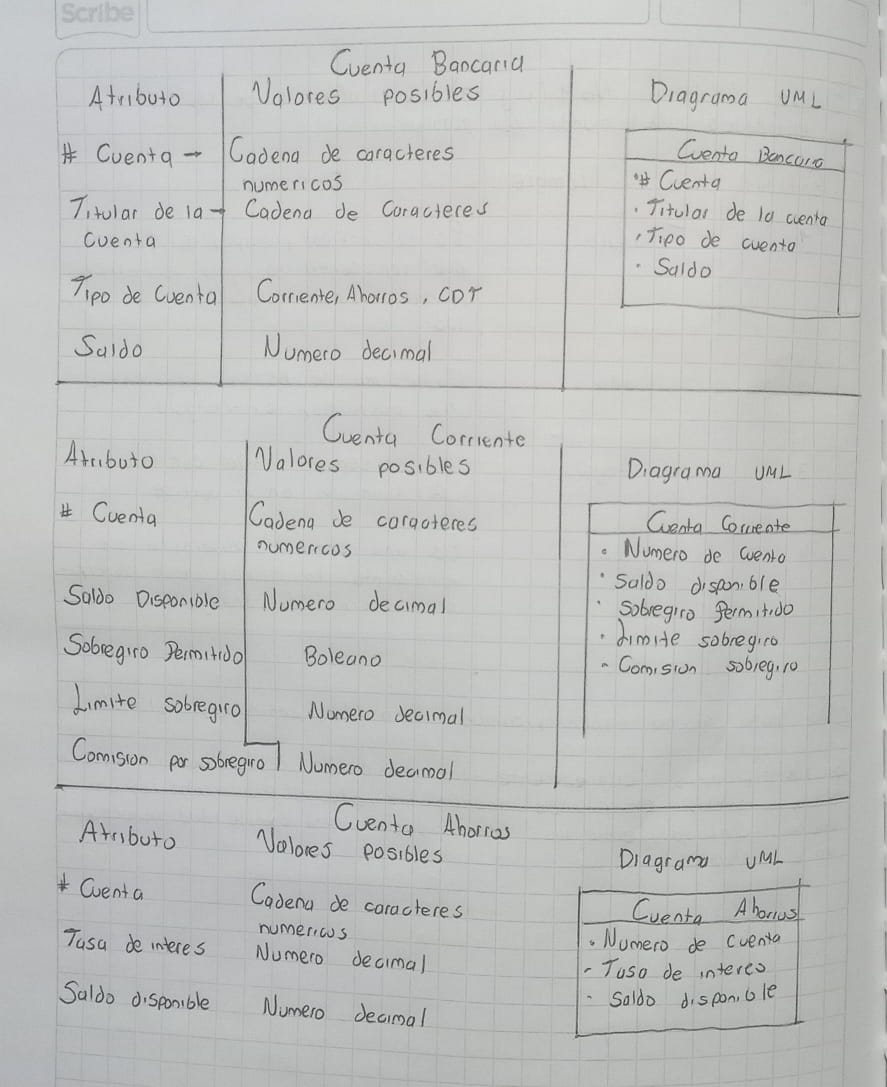 Scribe
Cuenta Bancaria
Atributo Valores posibles Diagrama UML
# Cuenta → Cadena de caracteres
numericos
Titular de la → Cadena de Caracteres
cuenta
Tipo de Cuenta Corriente, Ahorros, CDT
Saldo Numero decimal
Cuenta Bancaria
· # Cuenta
· Titular de la cuenta
· Tipo de cuenta
· Saldo
Cuenta Corriente
Atributo Valores posibles Diagrama UML
# Cuenta Cadena de caracteres
numericos
Saldo Disponible Numero decimal
Sobregiro Permitido Boleano
Limite sobregiro Numero decimal
Comision por sobregiro Numero decimal
Cuenta Corriente
· Numero de cuenta
· Saldo disponible
· Sobregiro Permitido
· Limite sobregiro
- Comision sobregiro
Cuenta Ahorros
Atributo Valores posibles Diagrama UML
# Cuenta Cadena de caracteres
numericos
Tasa de interes Numero decimal
Saldo disponible Numero decimal
Cuenta Ahorros
· Numero de cuenta
- Tasa de interes
- Saldo disponible